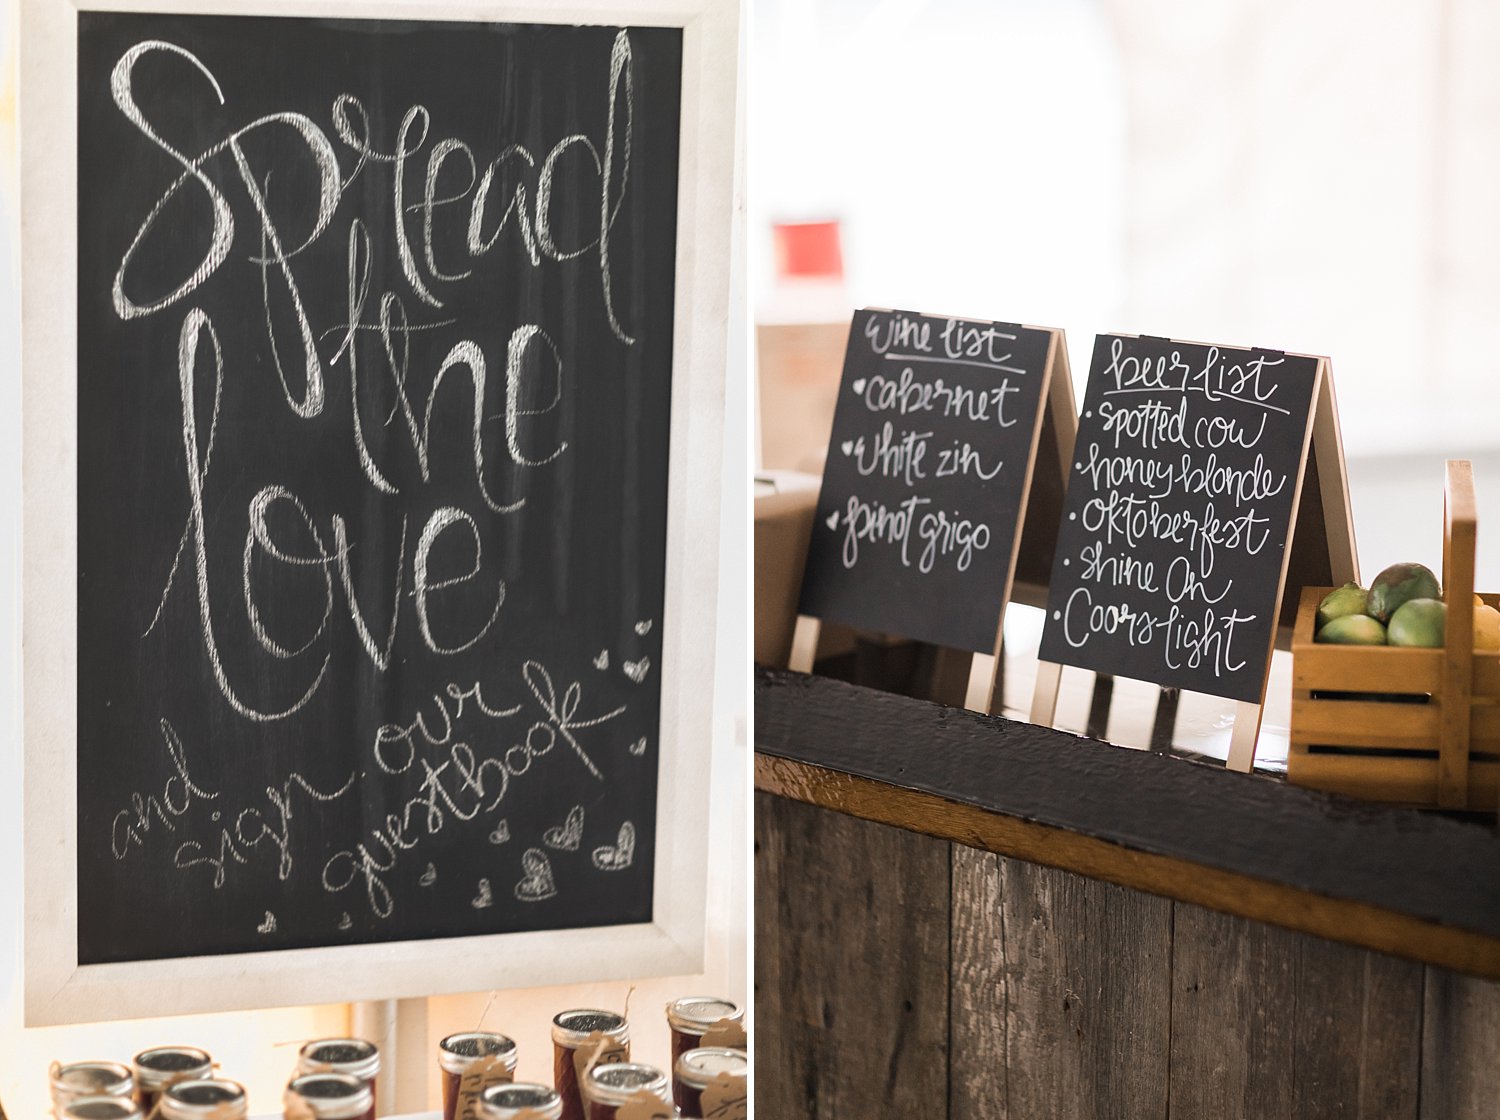 Spread
the
love
and sign our
guestbook
wine list
cabernet
white zin
pinot grigo
beer list
spotted cow
honey blonde
oktoberfest
shine On
Coors light